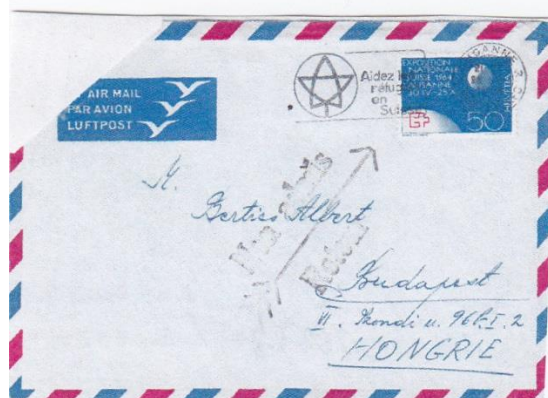 AIR MAIL
PAR AVION
LUFTPOST
Aidez
réfug
en
Suisse
EXPOSITION
NATIONALE
SUISSE 1964
LAUSANNE
30.IV-25.X
50
M.
Albert
Non admis
Retour
Budapest
VI. Rondi u. 96 I. 2
HONGRIE